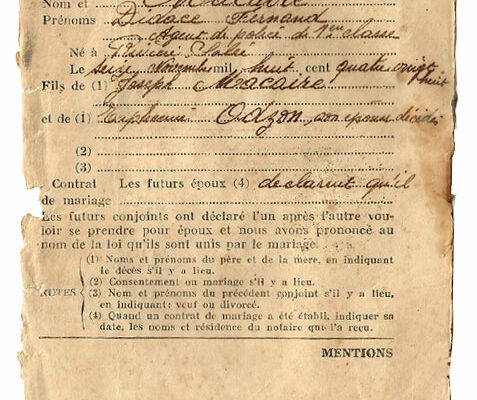 Nom et Macaire
Prénoms Didace Fernand
Agent de police de 1ère classe
Né à
Le seize Novembre mil huit cent quatre vingt huit
Fils de (1) Joseph Macaire
et de (1) Euphémie Odzon, son épouse décédés
(2)
(3)
Contrat Les futurs époux (4) declarent qu'il
de mariage
Les futurs conjoints ont déclaré l'un après l'autre vou-
loir se prendre pour époux et nous avons prononcé au
nom de la loi qu'ils sont unis par le mariage.
(1) Noms et prénoms du père et de la mère, en indiquant
le décès s'il y a lieu.
(2) Consentement ou mariage s'il y a lieu.
NOTES (3) Nom et prénoms du précédent conjoint s'il y a lieu,
en indiquant: veuf ou divorcé.
(4) Quand un contrat de mariage a été établi, indiquer sa
date, les noms et résidence du notaire qui l'a reçu.
MENTIONS